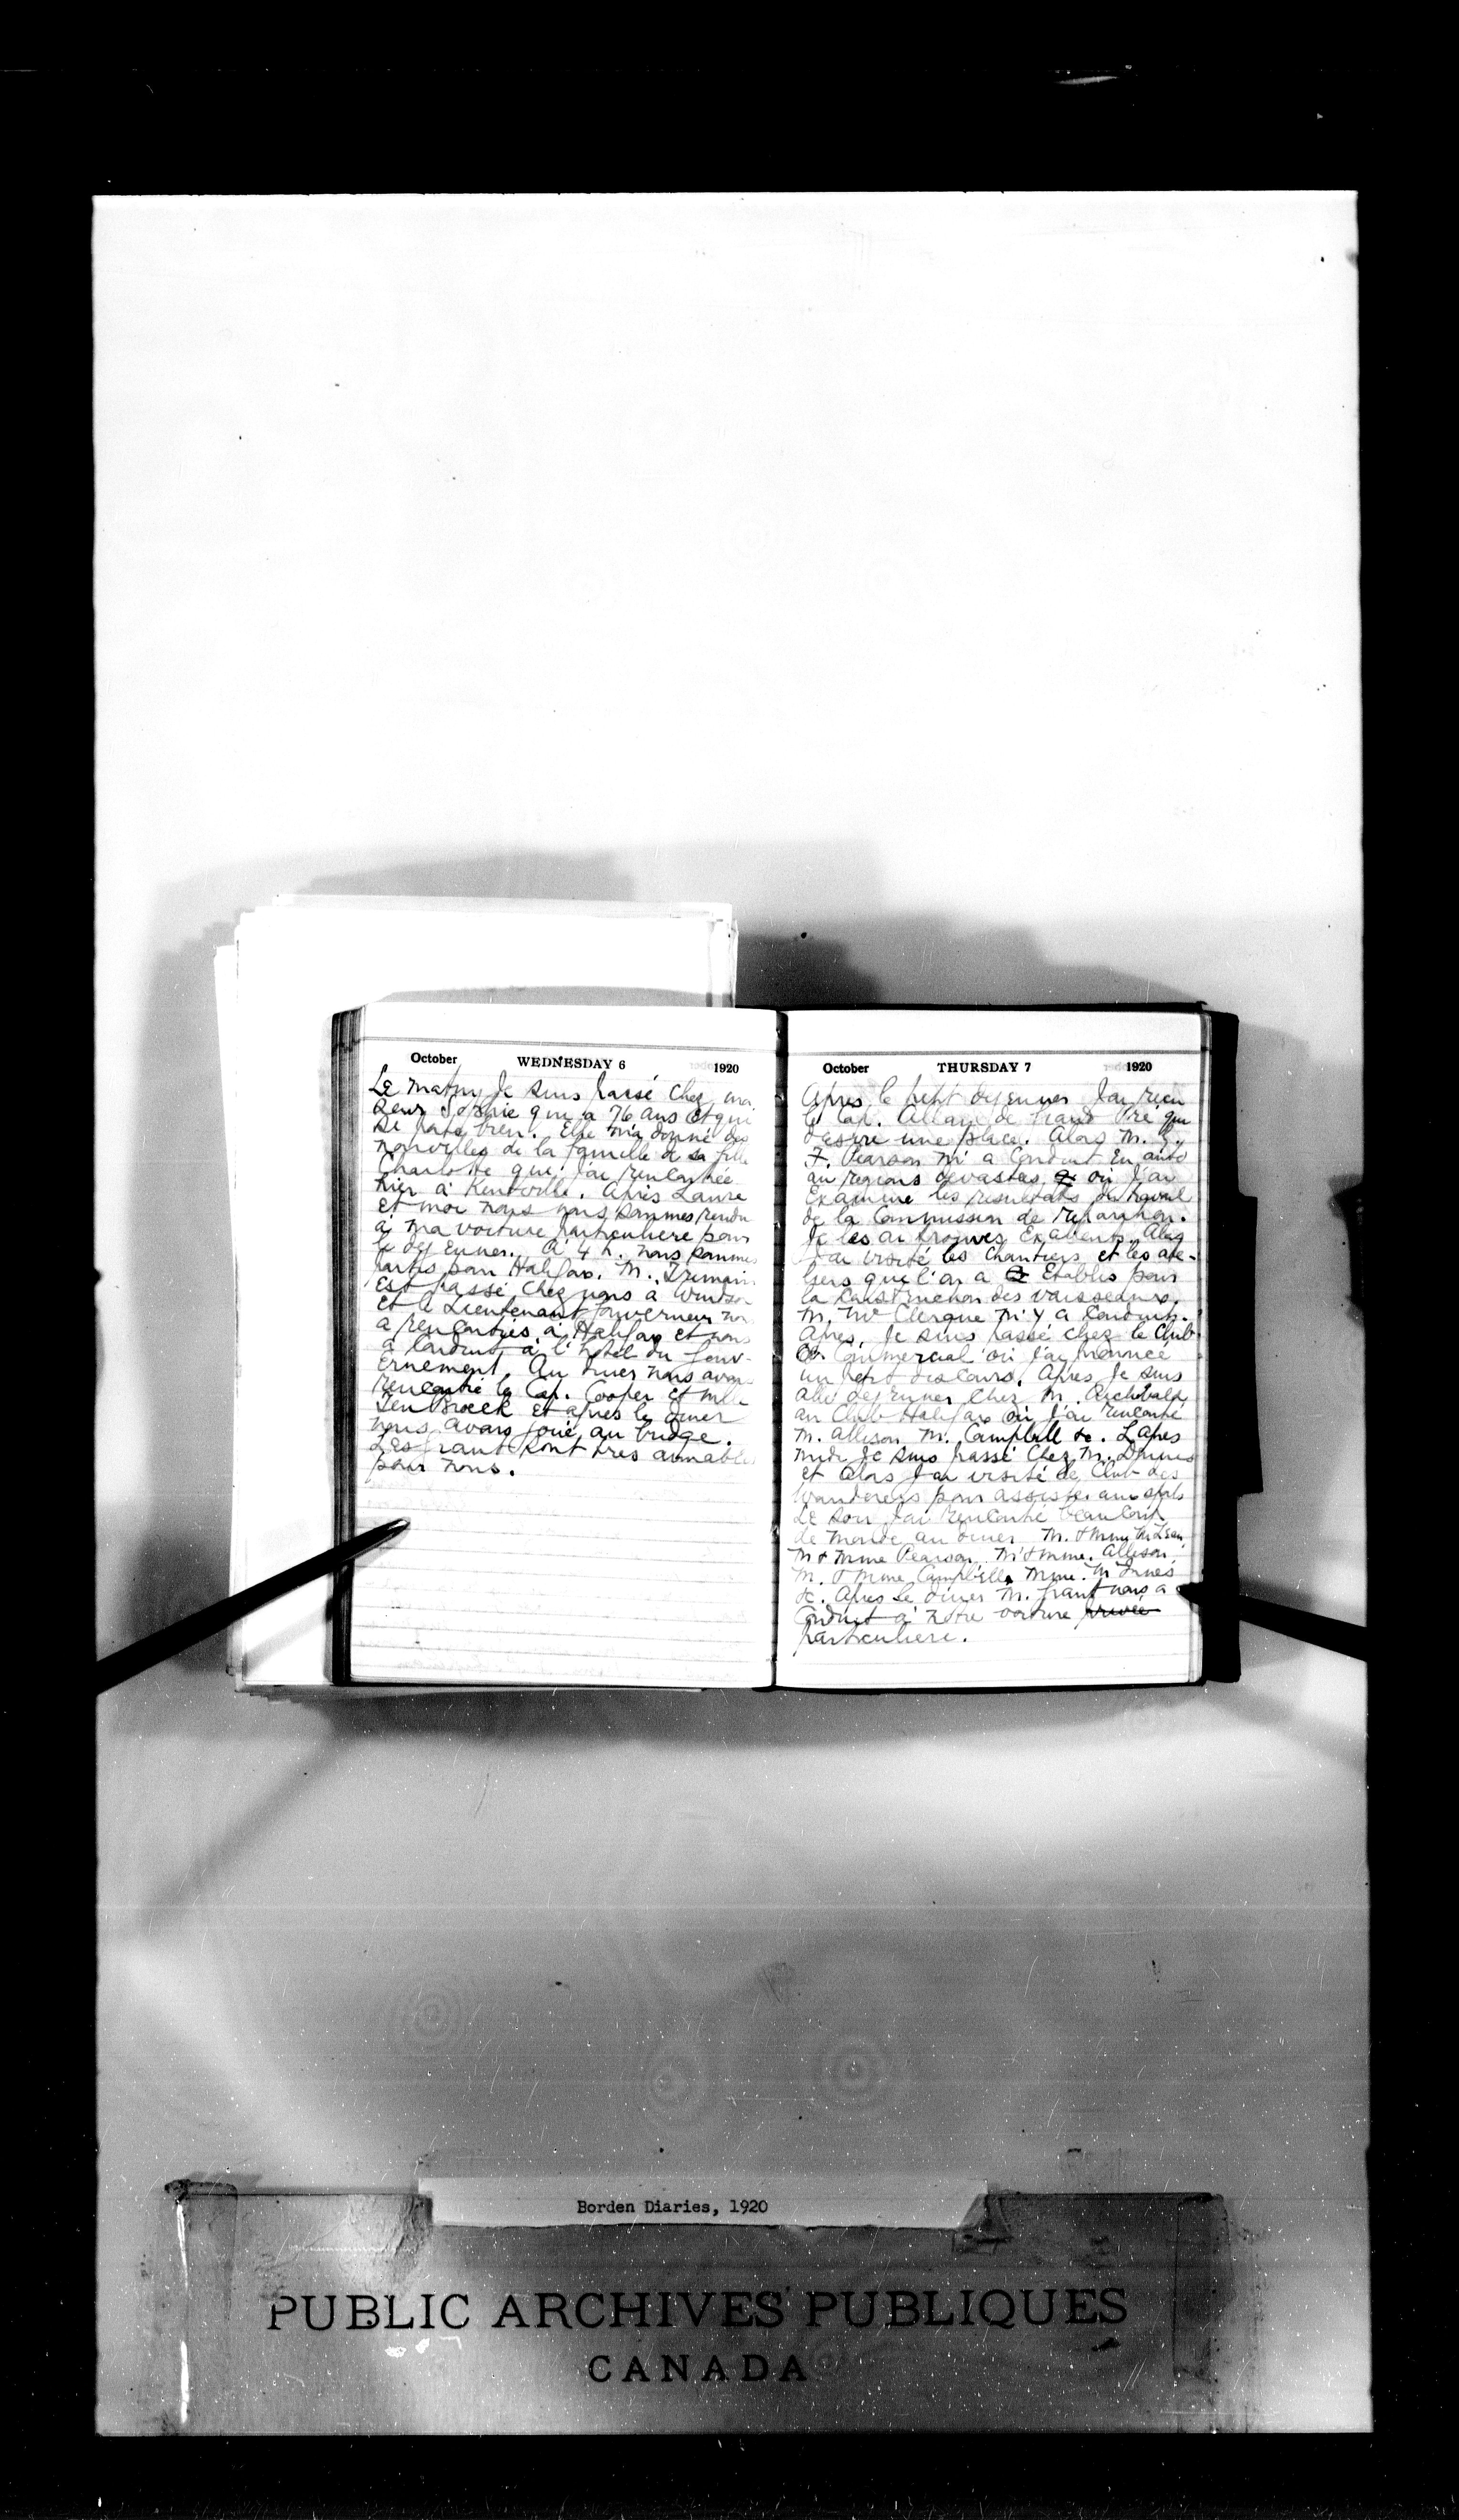 October WEDNESDAY 6 1920
Le matin je suis passé chez ma
seur Sophie qui a 76 ans et qui
se porte bien. Elle m'a donné des
nouvelles de la famille de sa fille
Charlotte que j'ai rencontrée
hier à Kentville. Après Laura
et moi nous nous sommes rendu
à ma voiture particuliere pour
le dejeuner. A 4 h. nous sommes
partis pour Halifax. M. Tremain
est passé chez nous à Windsor
et le Lieutenant Gouverneur nous
a rencontrés à Halifax et nous
a conduit à l'hotel du Gouv-
ernement. Au diner nous avons
rencontré le Cap. Cooper et Mlle
Ten Broeck et apres le diner
nous avons joué au bridge.
Les Grant sont tres aimables
pour nous.
October THURSDAY 7 1920
Apres le petit dejeuner j'ai reçu
le Cap. Allan de Grand Pré qui
desire une place. Alors M. G.
F. Pearson m'a conduit en auto
au regions devastes où j'ai
examiné les resultats du travail
de la Commission de reparation.
Je les ai trouves excellents. Alors
j'ai visité les chantiers et les ate-
liers que l'on a etablis pour
la construction des vaisseaux.
M. McClergue m'y a conduit.
Apres, je suis passé chez le Club
Commercial où j'ai prononcé
un petit discours. Apres je suis
allé dejeuner chez M. Archibald,
au Club Halifax où j'ai rencontré
M. Allison M. Campbell &c. L'apres
midi je suis passé chez M. Dennis
et alors j'ai visité le Club des
Wanderers pour assister aux sports
Le soir j'ai rencontré beaucoup
de monde au diner M. & Mme McLean
M & Mme Pearson, M & Mme. Allison,
M. & Mme Campbell, Mme. McInnes
&c. Apres le diner M. Grant nous a
conduit à notre voiture privée
particuliere.
Borden Diaries, 1920
PUBLIC ARCHIVES PUBLIQUES
CANADA